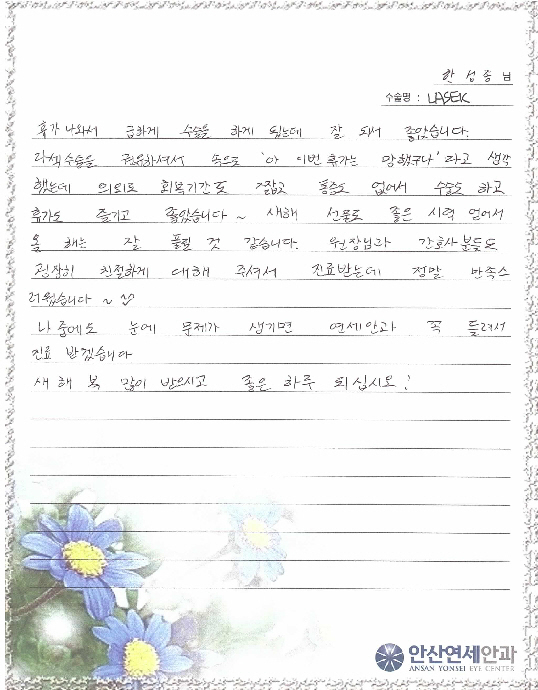 한성종님
수술명 : LASEK
휴가 나와서 급하게 수술을 하게 됬는데 잘 되서 좋았습니다.
라섹수술을 권유하셔서 속으로 '아 이번 휴가는 망했구나' 라고 생각
했는데 의외로 회복기간도 짧고 통증도 없어서 수술도 하고
휴가도 즐기고 좋았습니다 ~ 새해 선물로 좋은 시력 얻어서
올 해는 잘 풀릴 것 같습니다. 원장님과 간호사분들도
굉장히 친절하게 대해 주셔서 진료받는데 정말 만족스
러웠습니다 ~ ♡
나중에도 눈에 문제가 생기면 연세안과 꼭 들려서
진료 받겠습니다
새해 복 많이 받으시고 좋은 하루 되십시오!
안산연세안과
ANSAN YONSEI EYE CENTER